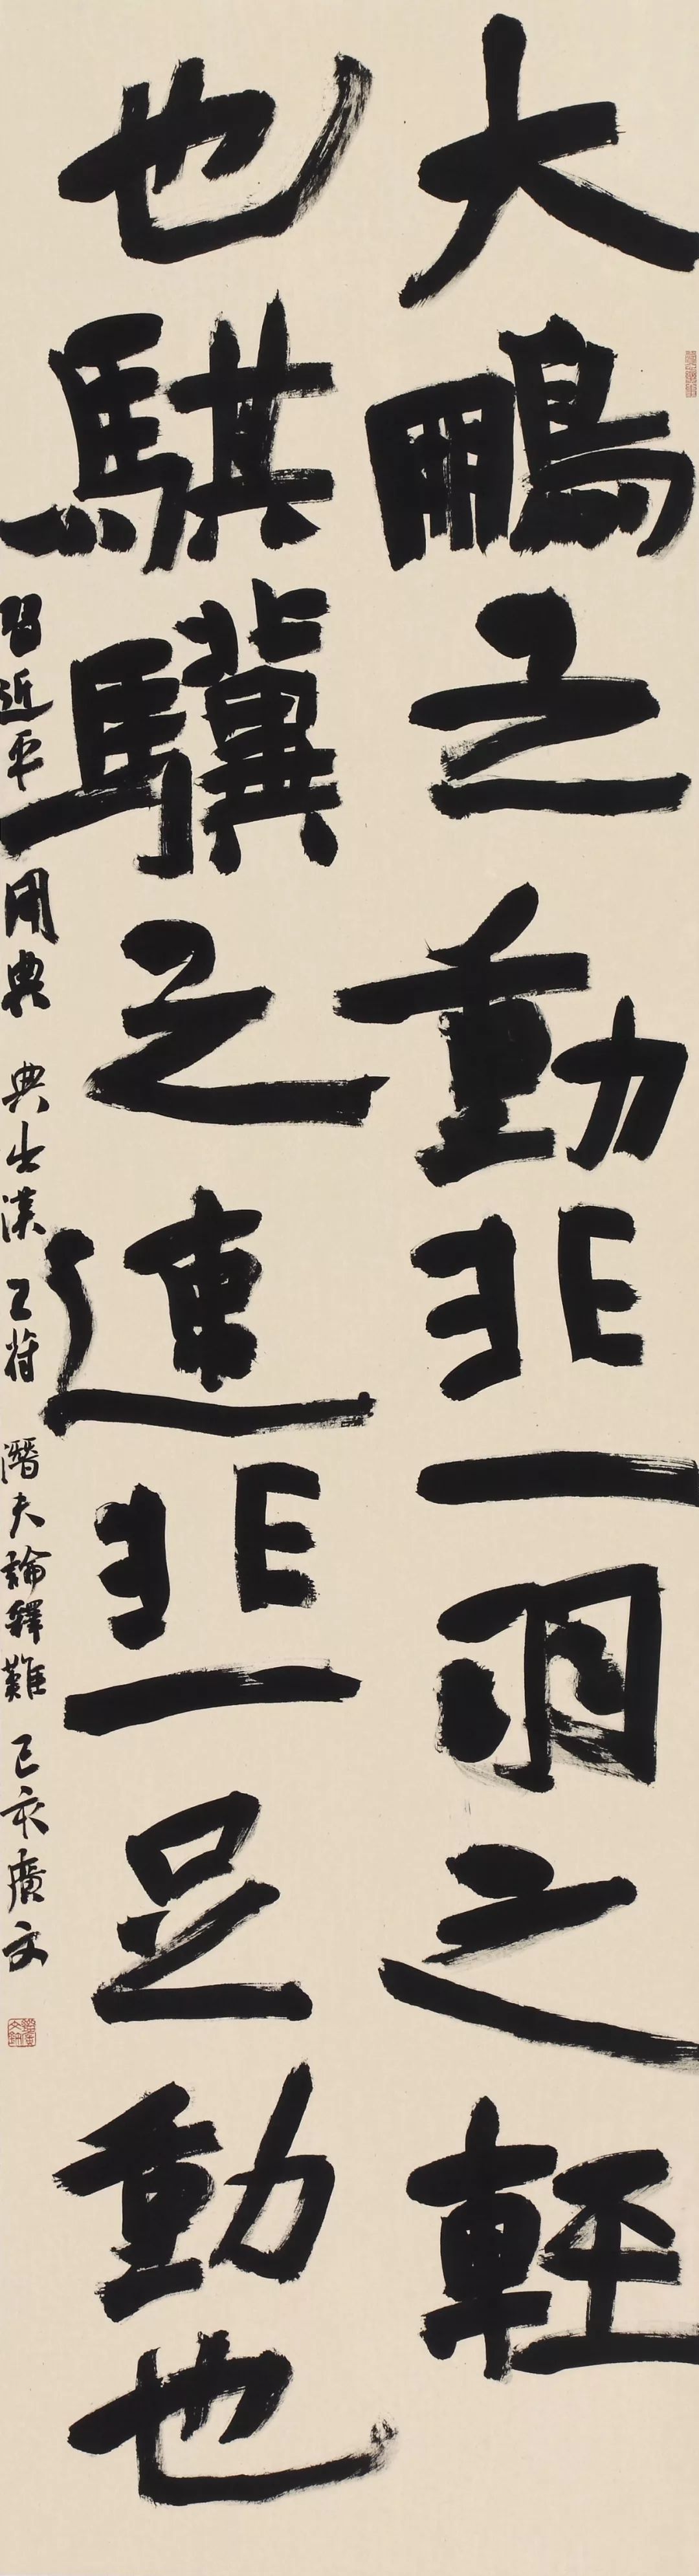 大鵬之動非一羽之輕
也騏驥之速非一足動也
習近平用典 典出漢 王符 潛夫論釋難 己亥廣文